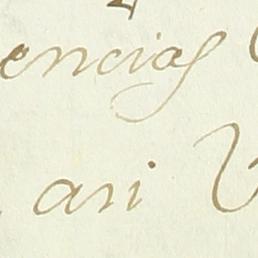 encias
asi